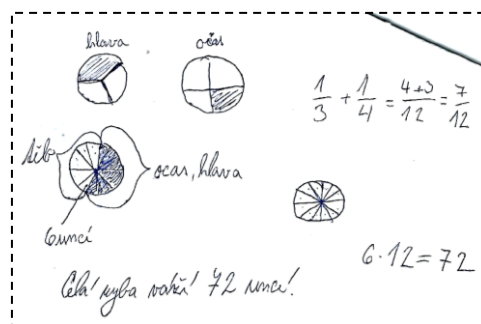 hlava
ocas
1/3 + 1/4 = 4+3/12 = 7/12
tělo
ocas, hlava
6 uncí
6 · 12 = 72
Celá ryba váží 72 uncí.